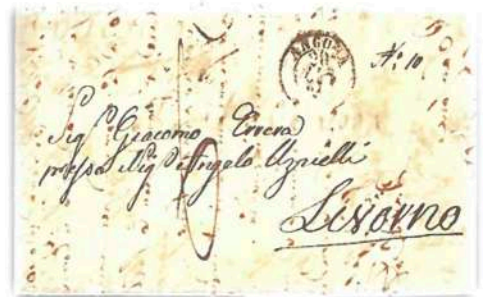 ANCONA
20
N.° 10
Sig.r Giacomo Errera
presso il Sig.r Angelo Uzielli
Livorno